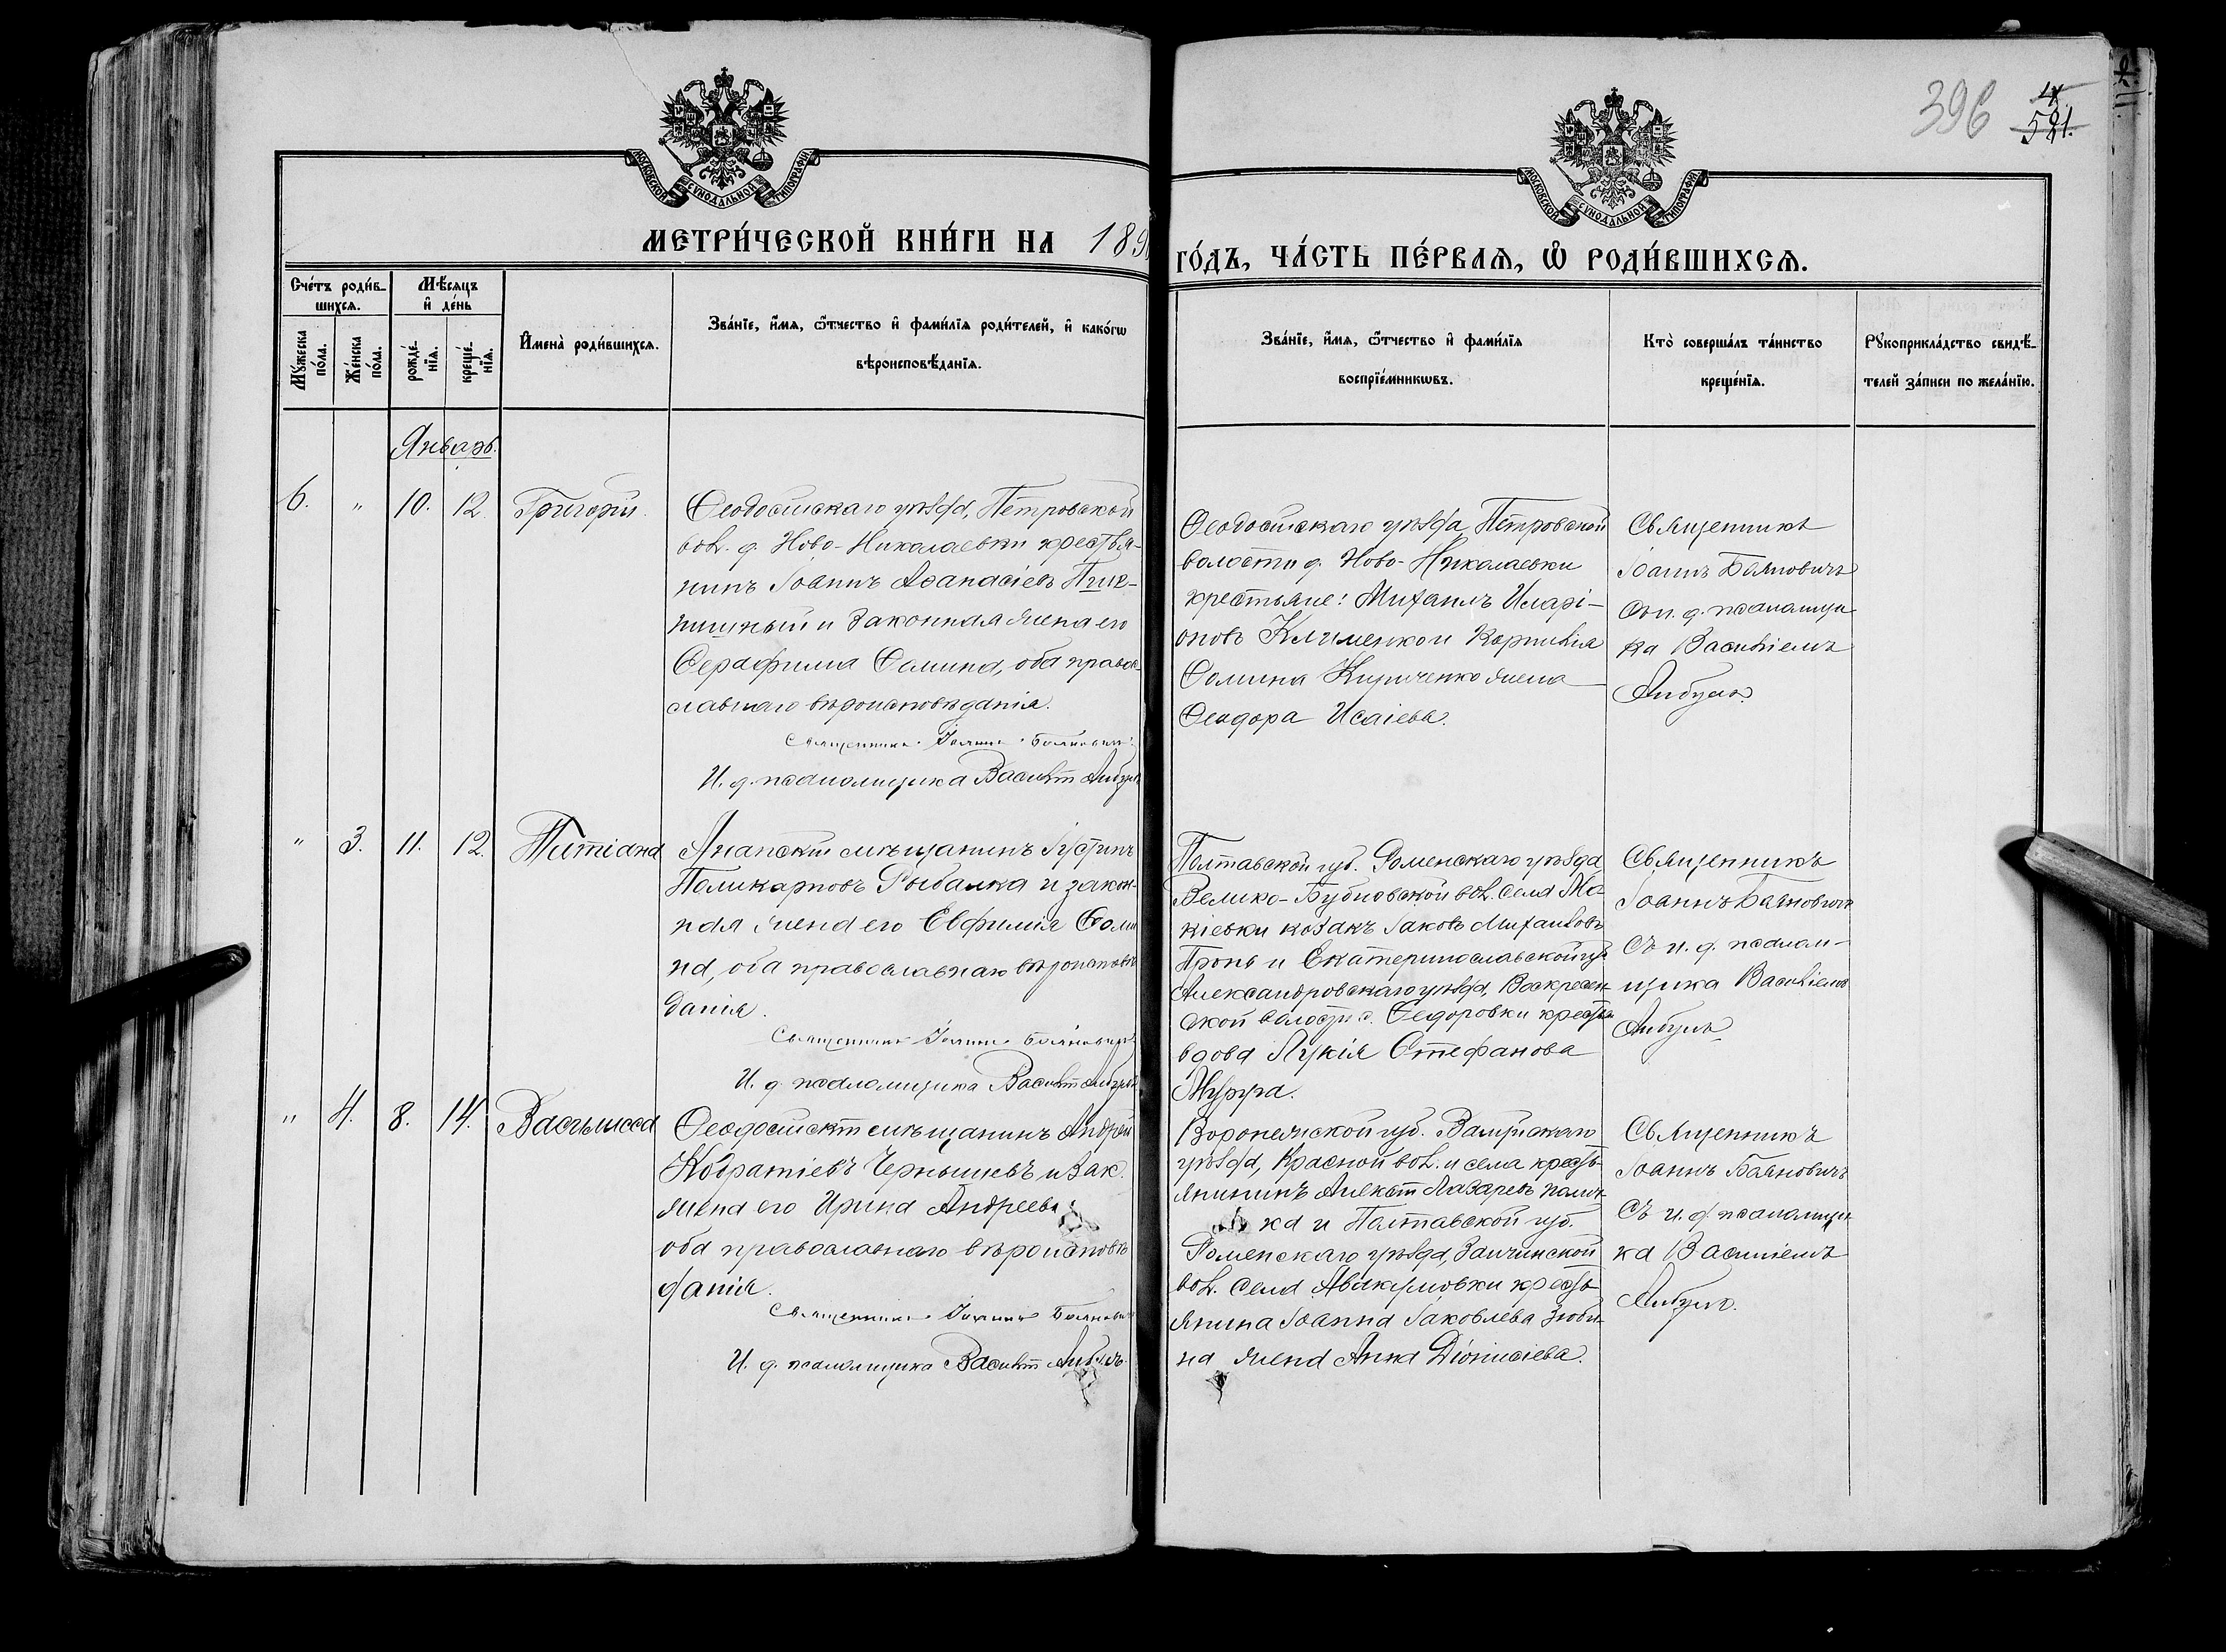 396
МОСКОВСКОЙ СУНОДАЛЬНОЙ ТИПОГРАФІИ
МОСКОВСКОЙ СУНОДАЛЬНОЙ ТИПОГРАФІИ
МЕТРИ́ЧЕСКОЙ КНИ́ГИ НА 189
ГО́ДЪ, ЧА́СТЬ ПЕ́РВАѦ, Ѡ РОДИ́ВШИХСѦ.
Сче́тъ роди́в-
шихсѧ.
Мꙋжеска по́ла.
Же́нска по́ла.
Мѣ́сѧцъ
и҆ де́нь
рожде́-
нїѧ.
креще́-
нїѧ.
И҆мена̀ роди́вшихсѧ.
Зва́нїе, и҆́мѧ, ѻ҆́тчество и҆ фами́лїѧ роди́телей, и҆ како́гѡ
вѣроисповѣ́данїѧ.
Зва́нїе, и҆́мѧ, ѻ҆́тчество и҆ фами́лїѧ
воспрїе́мникѡвъ.
Кто̀ соверша́лъ та́инство
креще́нїѧ.
Рꙋкоприкла́дство свидѣ́-
телей за́писи по жела́нїю.
Январь.
6. " 10. 12. Григорій.
Ѳеодосійскаго уѣзда, Петровской
вол. д. Ново-Николаевки крестья-
нинъ Іоаннъ Аѳанасіевъ
и законная жена его
Серафима Ѳомина, оба правос-
лавнаго вѣроисповѣданія.
Священникъ Іоаннъ Баяновичъ
И. д. псаломщика Василій
Ѳеодосійскаго уѣзда Петровской
волости д. Ново-Николаевки
крестьяне: Михаилъ Иларі-
оновъ Клименко и Корнилія
Ѳомина Кириченко жена
Ѳеодора Исаіева.
Священникъ
Іоаннъ Баяновичъ
съ и. д. псаломщи-
ка Василіемъ
" 3. 11. 12. Татіана
Анапскій мѣщанинъ Іустинъ
Поликарповъ Рыбалка и закон-
ная жена его Евфимія Ѳоми-
на, оба православнаго вѣроисповѣ-
данія.
Священникъ Іоаннъ Баяновичъ
И. д. псаломщика Василій
Полтавской губ. Роменскаго уѣзда,
Велико-Бубновской вол. села Ма-
кіевки козакъ Іаковъ Михаиловъ
Пронь и Екатеринославской губ.
Александровскаго уѣзда, Воскресен-
ской волости с. Ѳедоровки крестьян.
вдова Лукія Стефанова
Священникъ
Іоаннъ Баяновичъ
съ и. д. псалом-
щика Василіемъ
" 4. 8. 14. Васильисса
Ѳеодосійскій мѣщанинъ Андрей
Кодратіевъ Чернышевъ и зак.
жена его Ирина Андреева
оба православнаго вѣроисповѣ-
данія.
Священникъ Іоаннъ Баяновичъ
И. д. псаломщика Василій
Воронежской губ. Валуйскаго
уѣзда, Красной вол. и села кресть-
янинъ Алексій Лазаревъ
ка и Полтавской губ.
Роменскаго уѣзда,
вол. села Авакумовки кресть-
янина Іоанна Іаковлева Зюби-
на жена Анна Діонисіева.
Священникъ
Іоаннъ Баяновичъ
съ и. д. псаломщи-
ка Василіемъ